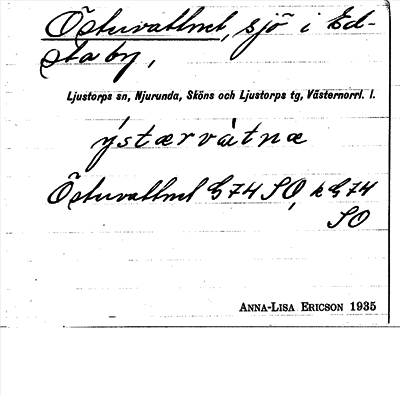 Östervattnet, sjö i Ed-
sta by,
Ljustorps sn, Njurunda, Sköns och Ljustorps tg, Västernorrl. l.
ýstærvàtnæ
Östervattnet G 74 SO, k G 74
SO
ANNA-LISA ERICSON 1935